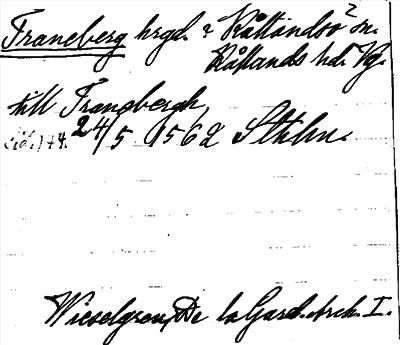 Traneberg hrgd. i Kållandsö sn.
Kållands hd. Vg.
till Tranebergh,
24/5 1562 Sthlm.
Wieselgren, De la Gard. Arch. I.